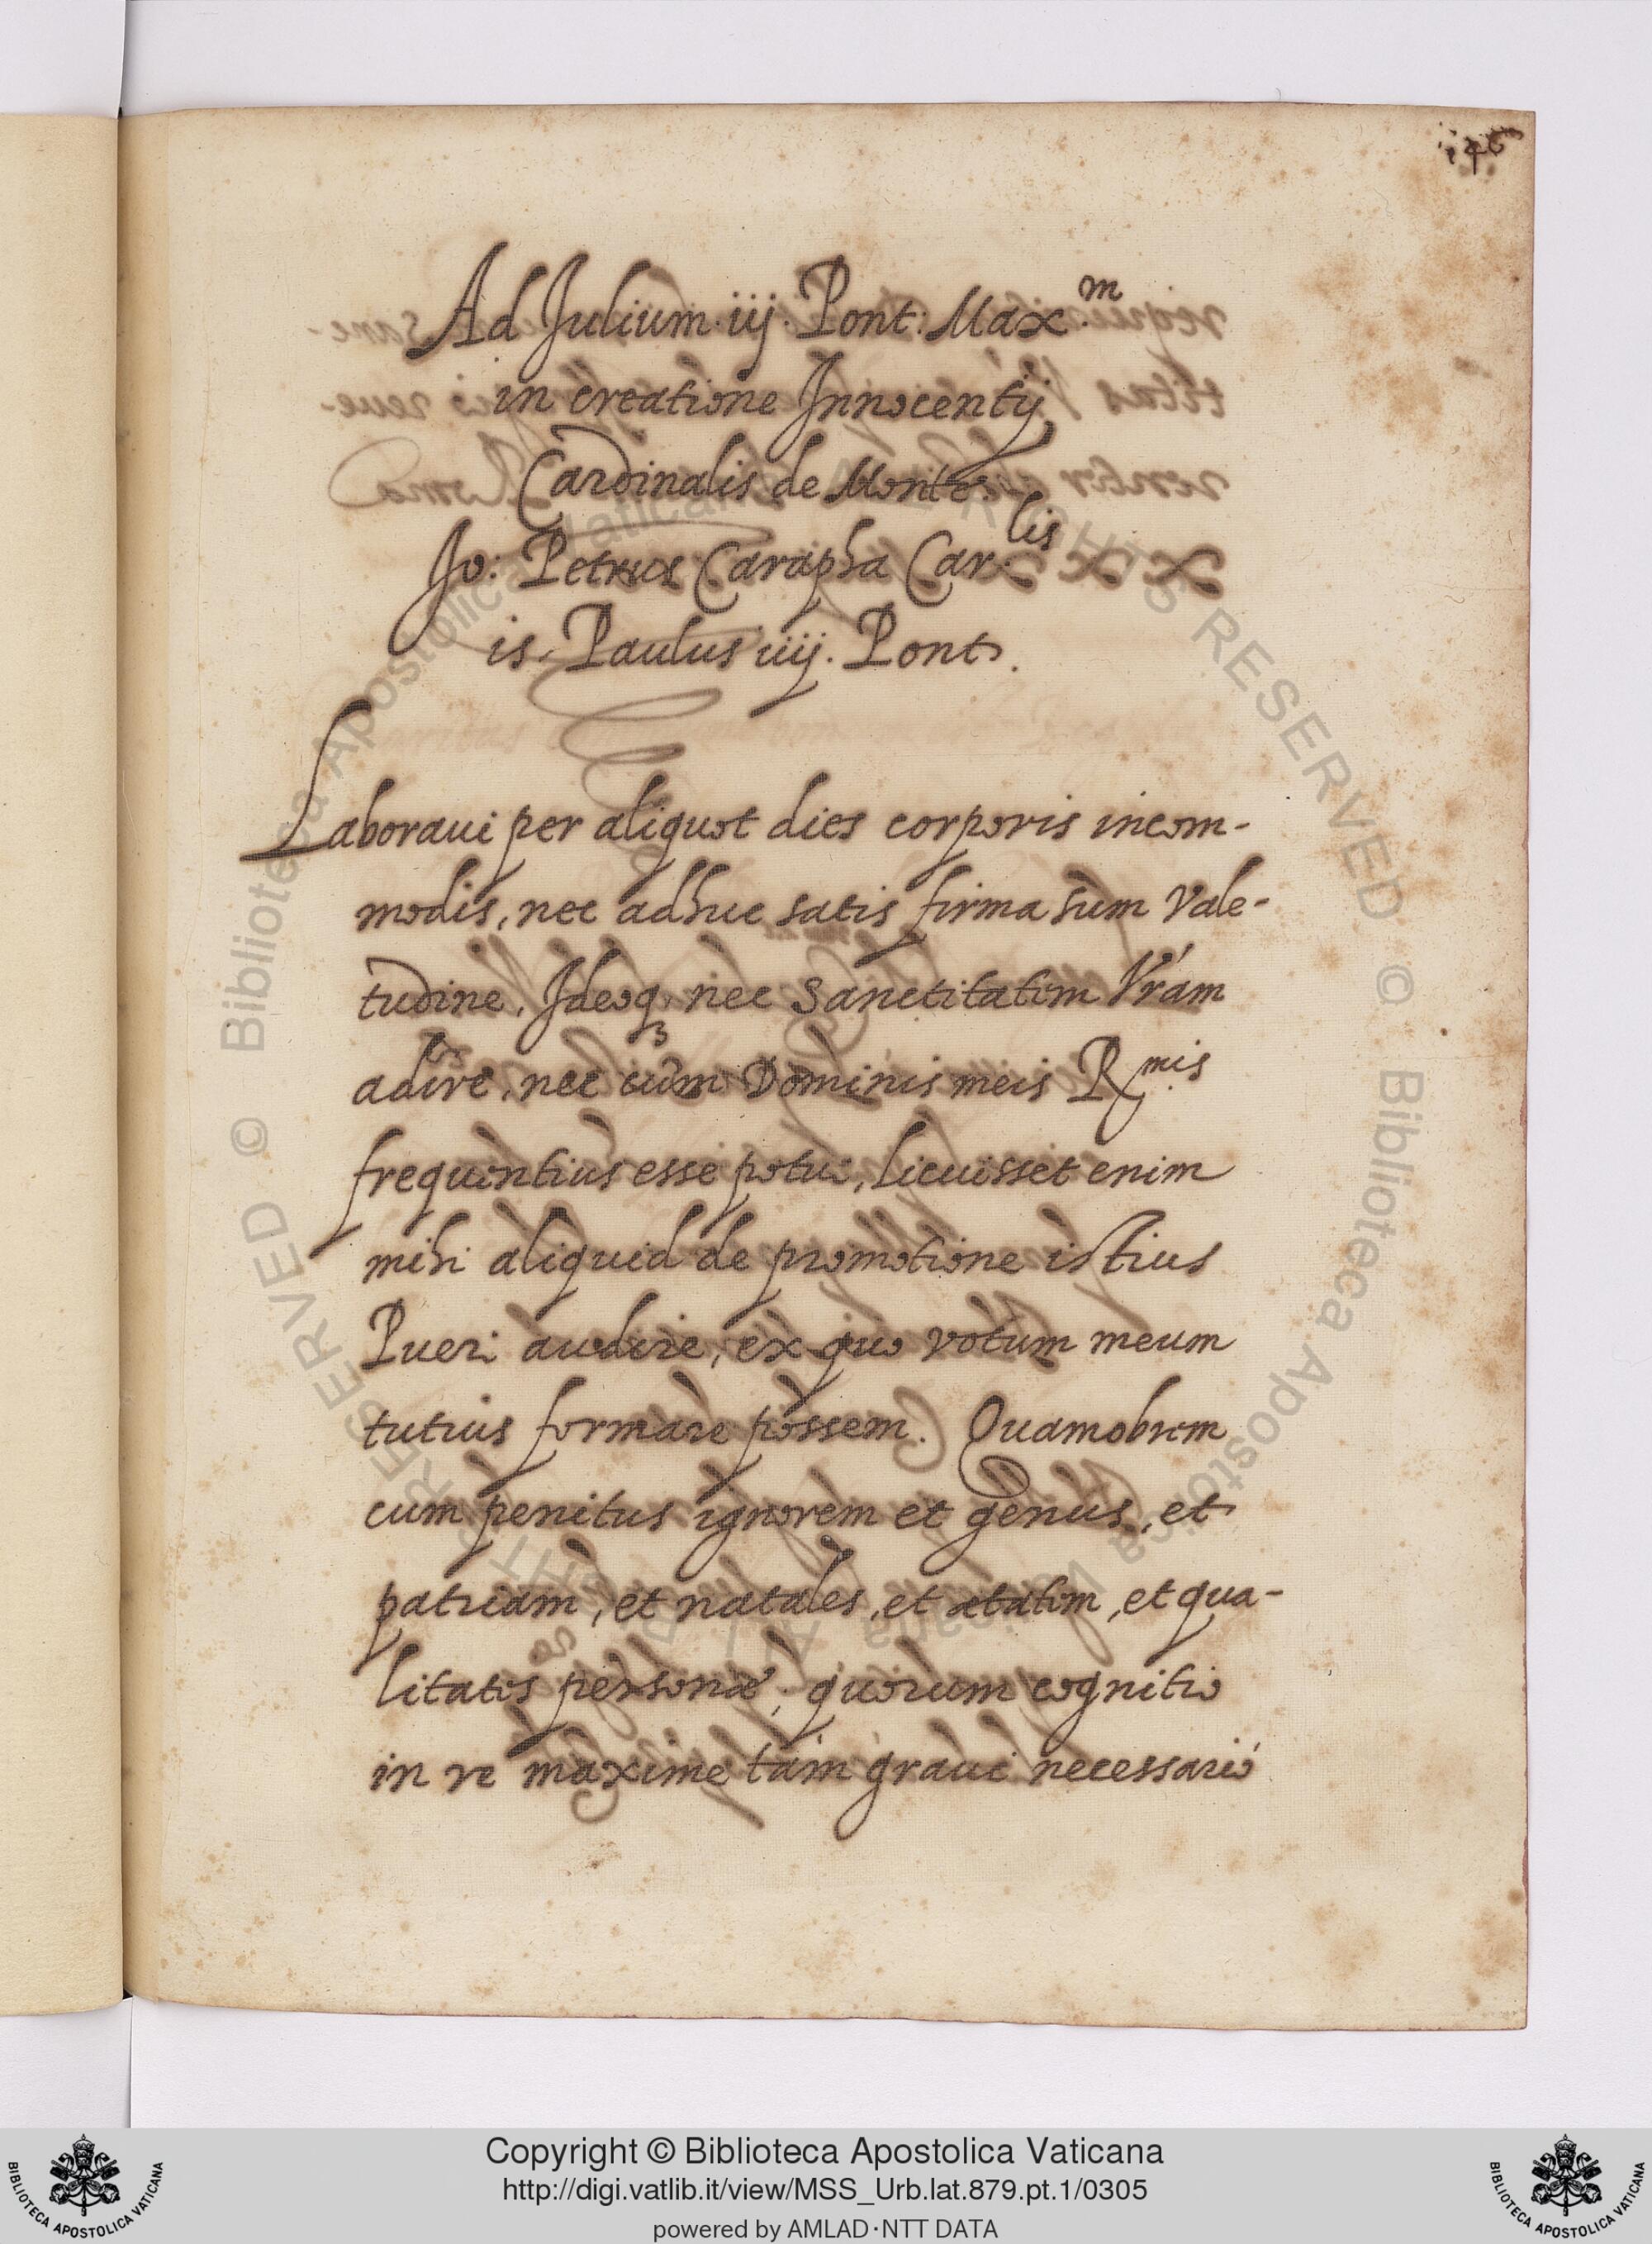 Ad Julium .iij. Pont: Max.m
in creatione Innocentij
Cardinalis de Monte.
Jo: Petrus Carapha Car.lis
is. Paulus iiij. Pont.
Laboraui per aliquot dies corporis incom-
modis, nec adhuc satis firma sum Vale-
tudine. Ideoq3 nec Sanctitatem Vram
adire, nec cum Dominis meis R.mis
frequentius esse potui, licuisset enim
mihi aliquid de promotione istius
Pueri audire, ex quo votum meum
tutius formare possem. Quamobrem
cum penitus ignorem et genus, et
patriam, et natales, et ætatem, et qua-
litates personæ; quorum cognitio
in re maxime tam graui necessariò
© Biblioteca Apostolica Vaticana ALL RIGHTS RESERVED © Biblioteca Apostolica Vaticana ALL RIGHTS RESERVED
Copyright © Biblioteca Apostolica Vaticana
http://digi.vatlib.it/view/MSS_Urb.lat.879.pt.1/0305
powered by AMLAD·NTT DATA
BIBLIOTECA APOSTOLICA VATICANA
BIBLIOTECA APOSTOLICA VATICANA